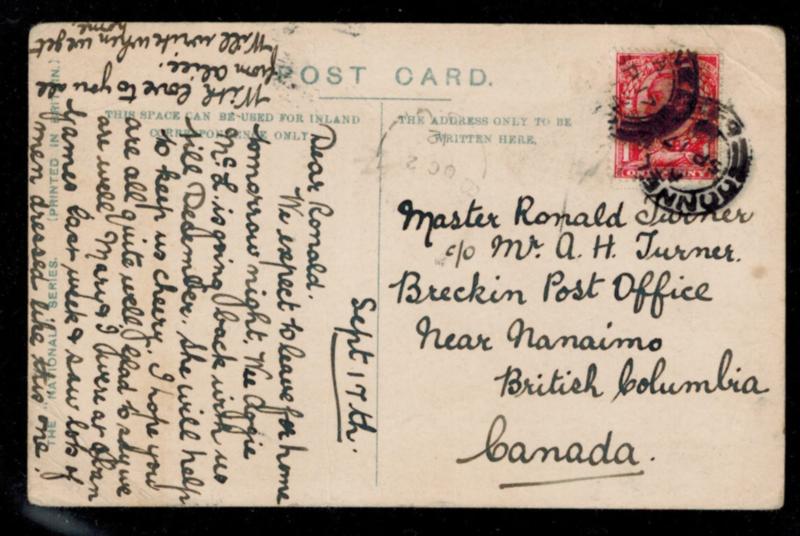 POST CARD.
THIS SPACE CAN BE USED FOR INLAND
CORRESPONDENCE ONLY
THE ADDRESS ONLY TO BE
WRITTEN HERE.
THE NATIONAL SERIES. (PRINTED IN BRITAIN.)
Sept 17th.
Dear Ronald.
We expect to leave for home
tomorrow night. Wee
is going back with us
till December. She will help
to keep us cheery. I hope you
are all quite well, glad to say we
are well. Mary & I were at
Games last week & saw lots of
men dressed like this one.
With love to you all
from Alice.
Will write when we get
home.
Master Ronald Turner
c/o Mr. A. H. Turner.
Breckin Post Office
Near Nanaimo
British Columbia
Canada.